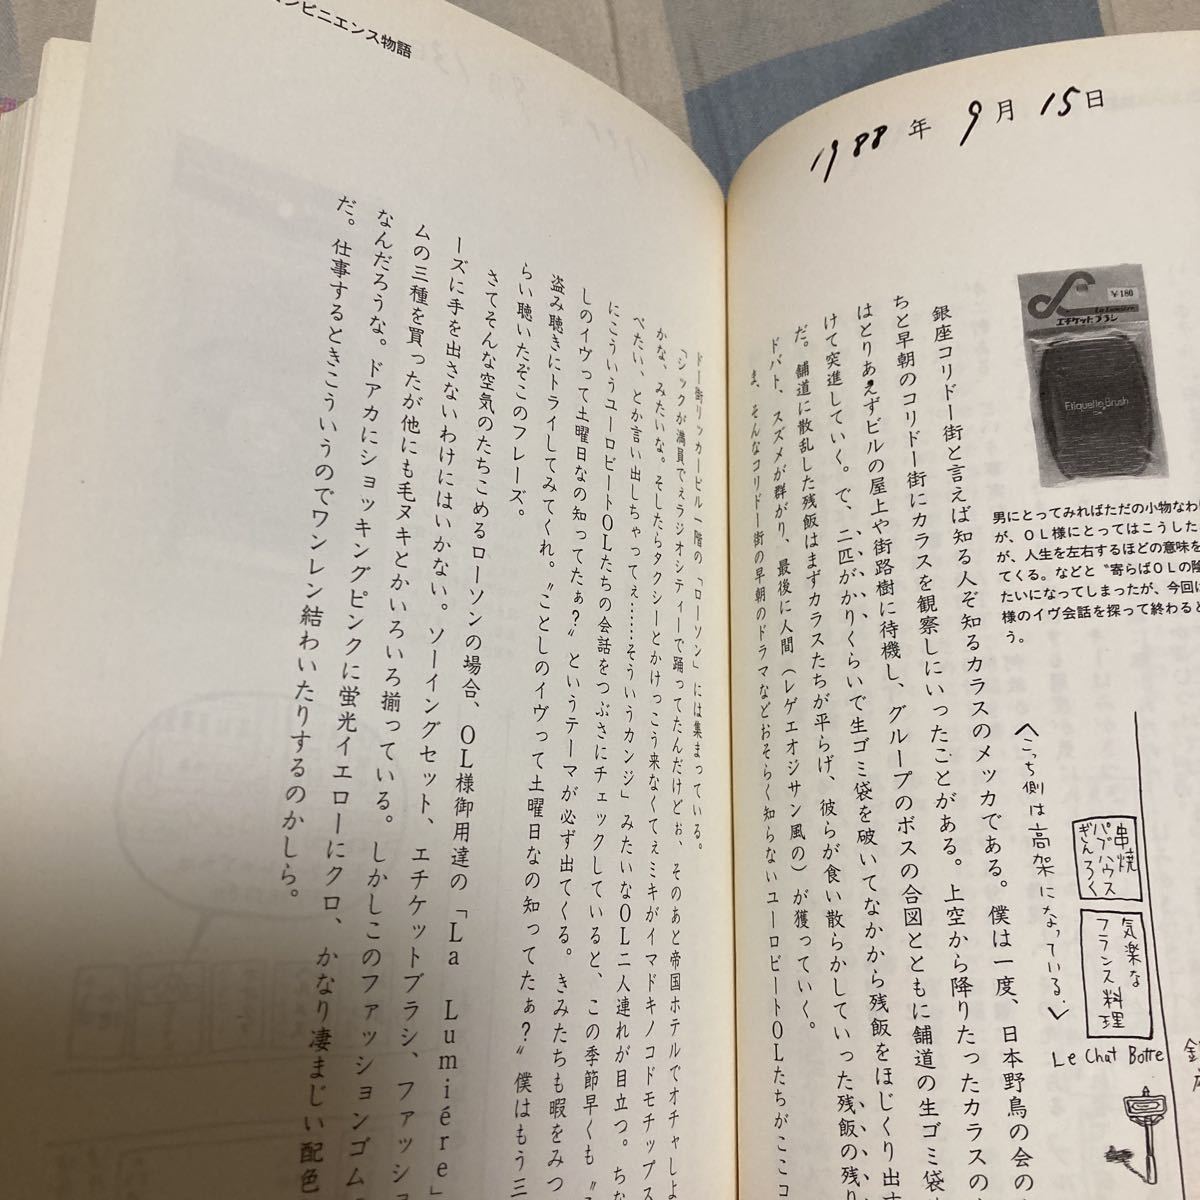 ンビニエンス物語
1988年9月15日
¥180
La Lumiére
エチケットブラシ
Etiquette Brush
男にとってみればただの小物なわ
が、OL様にとってはこうした
が、人生を左右するほどの意味を
てくる。などと〝寄らばOLの陰
たいになってしまったが、今回は
様のイヴ会話を探って終わると
う。
銀座コリドー街と言えば知る人ぞ知るカラスのメッカである。僕は一度、日本野鳥の会の
ちと早朝のコリドー街にカラスを観察しにいったことがある。上空から降りたったカラスの
はとりあえずビルの屋上や街路樹に待機し、グループのボスの合図とともに舗道の生ゴミ袋
けて突進していく。で、二匹がかりくらいで生ゴミ袋を破いてなかから残飯をほじくり出す
だ。舗道に散乱した残飯はまずカラスたちが平らげ、彼らが食い散らかしていった残飯の残り
ドバト、スズメが群がり、最後に人間（レゲエオジサン風の）が獲っていく。
ま、そんなコリドー街の早朝のドラマなどおそらく知らないユーロビートOLたちがここコ
〈こっち側は高架になっている〉
串焼
パブハウス
ぎんろく
気楽な
フランス料理
Le Chat Botte
ドー街リッカービル一階の「ローソン」には集まっている。
「シックが満員でぇラジオシティーで踊ってたんだけどぉ、そのあと帝国ホテルでオチャしよ
かな、みたいな。そしたらタクシーとかけっこう来なくてぇミキがイマドキノコドモチップス
べたい、とか言い出しちゃってぇ……そういうカンジ」みたいなOL二人連れが目立つ。ちな
にこういうユーロビートOLたちの会話をつぶさにチェックしていると、この季節早くも〝
しのイヴって土曜日なの知ってたぁ？〟というテーマが必ず出てくる。きみたちも暇をみつ
盗み聴きにトライしてみてくれ。〝ことしのイヴって土曜日なの知ってたぁ？〟僕はもう三
らい聴いたぞこのフレーズ。
さてそんな空気のたちこめるローソンの場合、OL様御用達の「La Lumiére」
ーズに手を出さないわけにはいかない。ソーイングセット、エチケットブラシ、ファッシ
ムの三種を買ったが他にも毛ヌキとかいろいろ揃っている。しかしこのファッションゴム
なんだろうな。ドアカにショッキングピンクに蛍光イエローにクロ、かなり凄まじい配色
だ。仕事するときこういうのでワンレン結わいたりするのかしら。